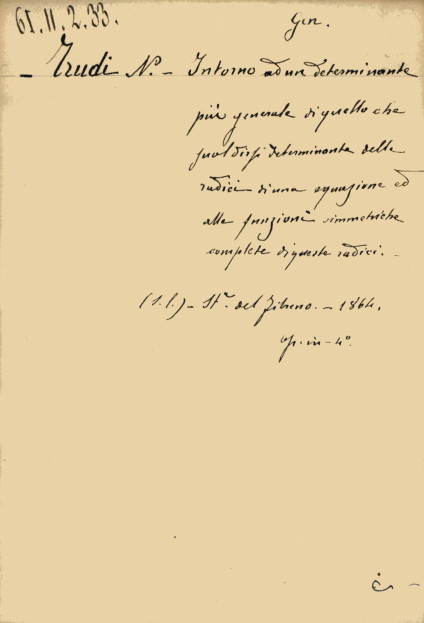 61.11.2.33.
Gen.
- Trudi N. - Intorno ad un determinante
più generale di quello che
suol dirsi determinante delle
radici di una equazione ed
alle funzioni simmetriche
complete di queste radici. -
(s. l.) - St. del Fibreno. - 1864.
op. in - 4°.